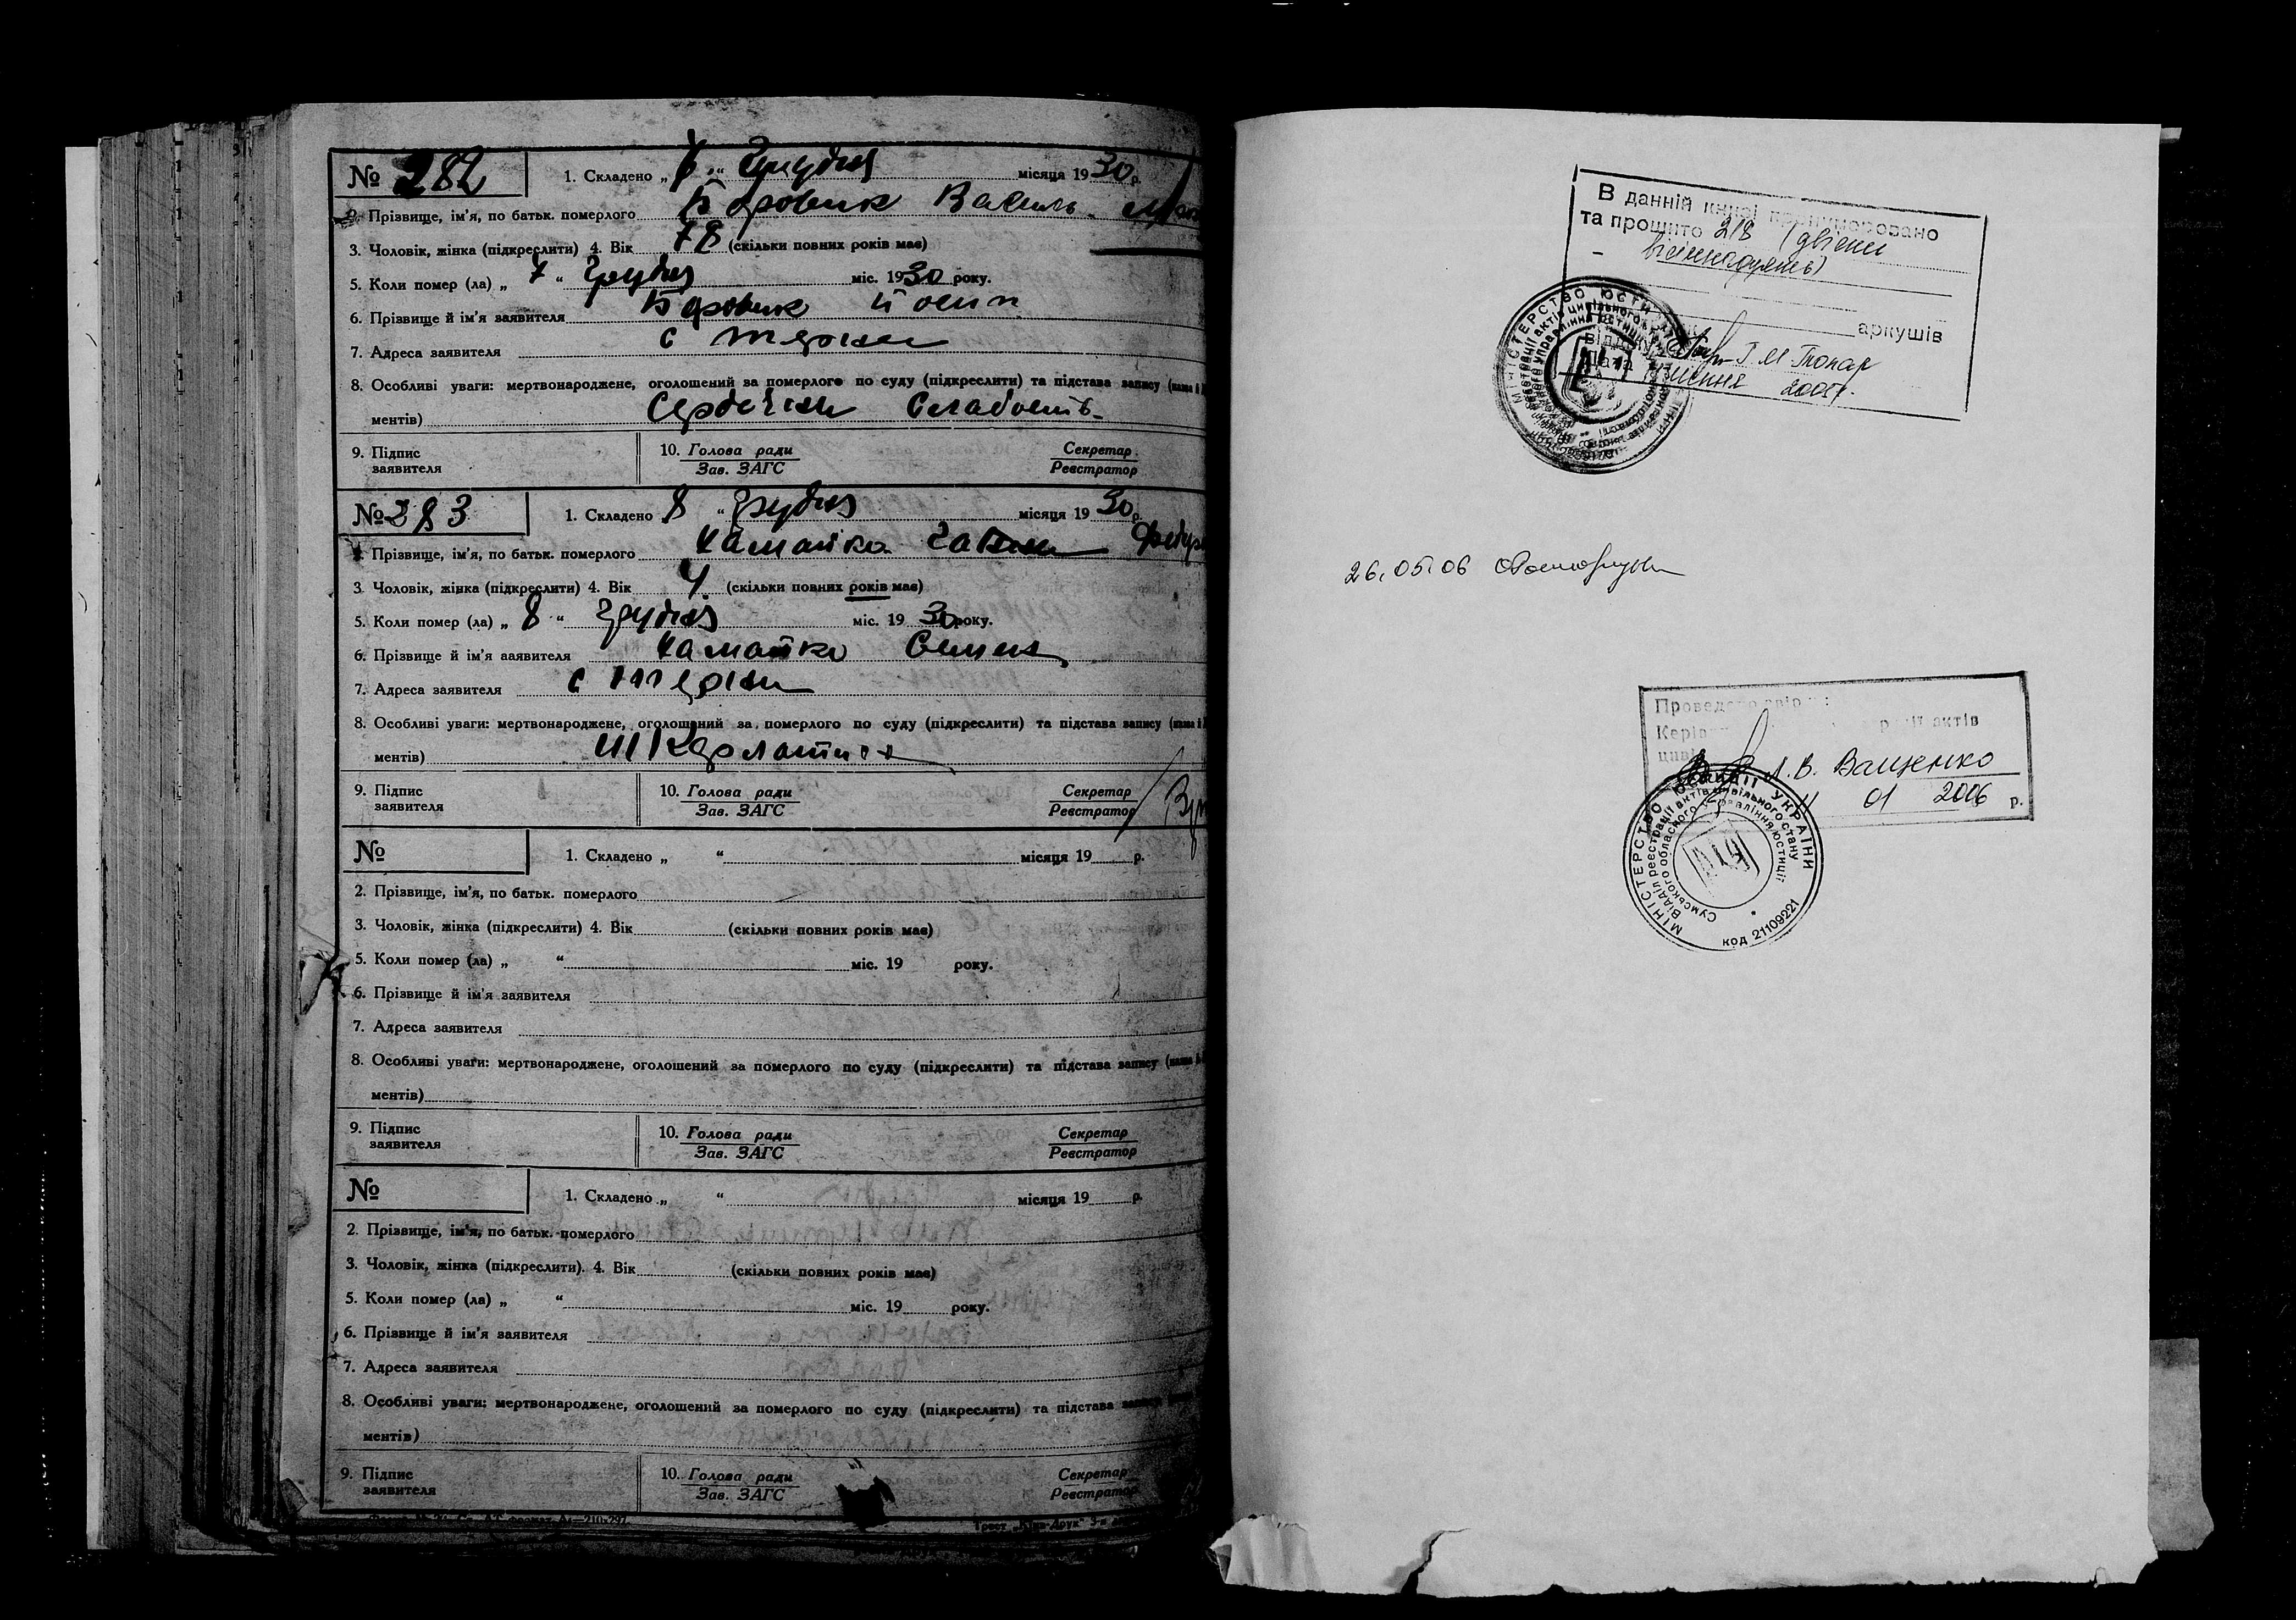 № 282 1. Складено „ “ Грудня місяця 1930 р.
2. Прізвище, ім'я, по батьк. померлого Боровик Василь
3. Чоловік, жінка (підкреслити) 4. Вік 78 (скільки повних років має)
5. Коли помер (ла) „ 7 “ Грудня міс. 1930 року.
6. Прізвище й ім'я заявителя Боровик Йосип
7. Адреса заявителя с Терни
8. Особливі уваги: мертвонароджене, оголошений за померлого по суду (підкреслити) та підстава запису
ментів) Сердечна слабость
9. Підпис заявителя 10. Голова ради Секретар
Зав. ЗАГС Реєстратор
№ 283 1. Складено 8 “ Грудня місяця 1930 р.
2. Прізвище, ім'я, по батьк. померлого
3. Чоловік, жінка (підкреслити) 4. Вік 4 (скільки повних років має)
5. Коли помер (ла) „ 8 “ Грудня міс. 1930 року.
6. Прізвище й ім'я заявителя Семен
7. Адреса заявителя с Терни
8. Особливі уваги: мертвонароджене, оголошений за померлого по суду (підкреслити) та підстава запису
ментів) Шкарлатина
9. Підпис заявителя 10. Голова ради Секретар
Зав. ЗАГС Реєстратор
№ 1. Складено „ “ місяця 19 р.
2. Прізвище, ім'я, по батьк. померлого
3. Чоловік, жінка (підкреслити) 4. Вік (скільки повних років має)
5. Коли помер (ла) „ “ міс. 19 року.
6. Прізвище й ім'я заявителя
7. Адреса заявителя
8. Особливі уваги: мертвонароджене, оголошений за померлого по суду (підкреслити) та підстава запису
ментів)
9. Підпис заявителя 10. Голова ради Секретар
Зав. ЗАГС Реєстратор
№ 1. Складено „ “ місяця 19 р.
2. Прізвище, ім'я, по батьк. померлого
3. Чоловік, жінка (підкреслити). 4. Вік (скільки повних років має)
5. Коли помер (ла) „ “ міс. 19 року.
6. Прізвище й ім'я заявителя
7. Адреса заявителя
8. Особливі уваги: мертвонароджене, оголошений за померлого по суду (підкреслити) та підстава
ментів)
9. Підпис заявителя 10. Голова ради Секретар
Зав. ЗАГС Реєстратор
В данній книзі пронумеровано
та прошито 218 (двісті
вісімнадцять)
аркушів
Дата 2005р.
26.05.06
Проведено звірку:
актів
Л.В. Ващенко
11 01 2006 р.
МІНІСТЕРСТВО ЮСТИЦІЇ УКРАЇНИ
Відділ реєстрації актів цивільного стану
Сумського обласного управління юстиції
код 21109221